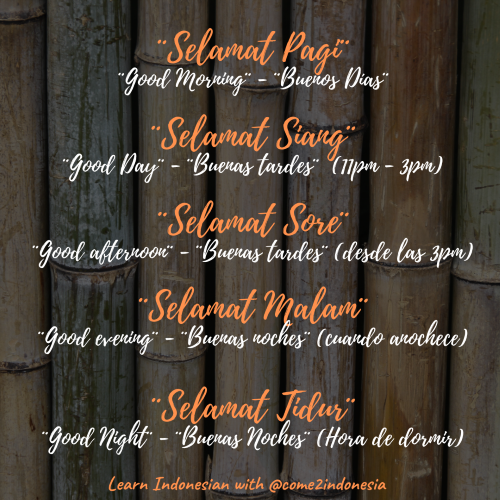 ¨Selamat Pagi¨
¨Good Morning¨ - ¨Buenos Dias¨
¨Selamat Siang¨
¨Good Day¨ - ¨Buenas tardes¨ (11pm - 3pm)
¨Selamat Sore¨
¨Good afternoon¨ - ¨Buenas tardes¨ (desde las 3pm)
¨Selamat Malam¨
¨Good evening¨ - ¨Buenas noches¨ (cuando anochece)
¨Selamat Tidur¨
¨Good Night¨ - ¨Buenas Noches¨ (Hora de dormir)
Learn Indonesian with @come2indonesia